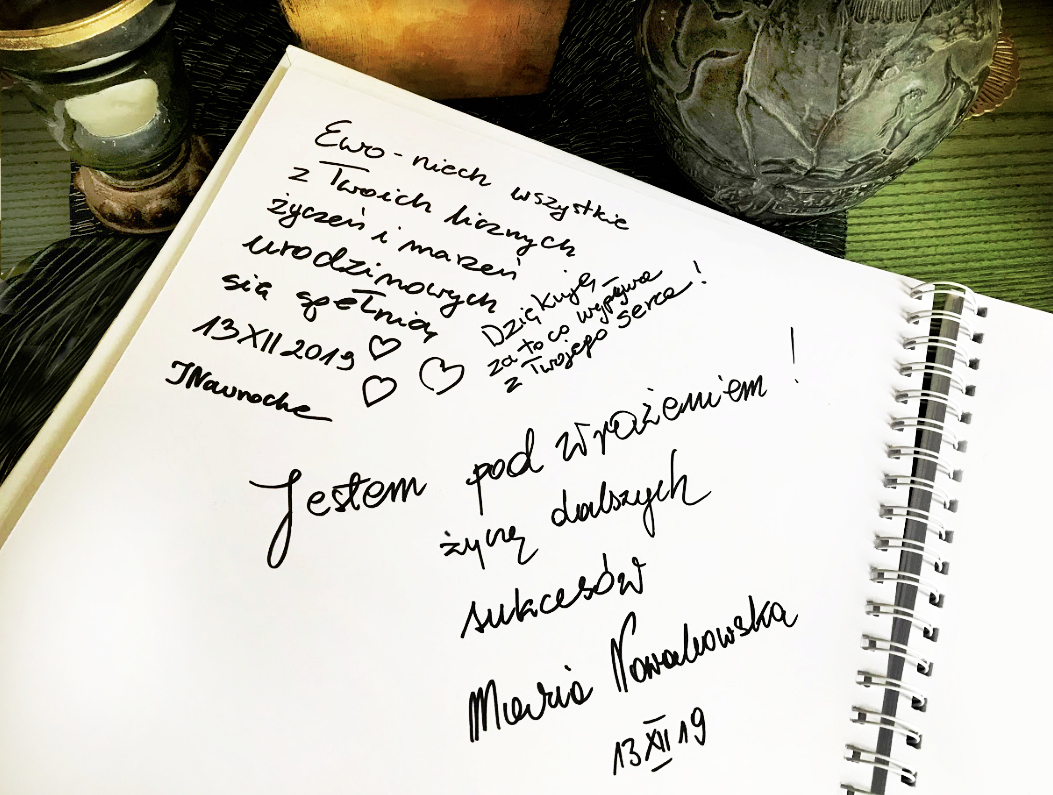 Ewo - niech wszystkie
z Twoich licznych
życzeń i marzeń
urodzinowych
się spełnią
13 XII 2019
JNawrocka
Dziękuję
za to co wypływa
z Twojego serca!
Jestem pod wrażeniem!
życzę dalszych
sukcesów
Maria Nowakowska
13 XII 19